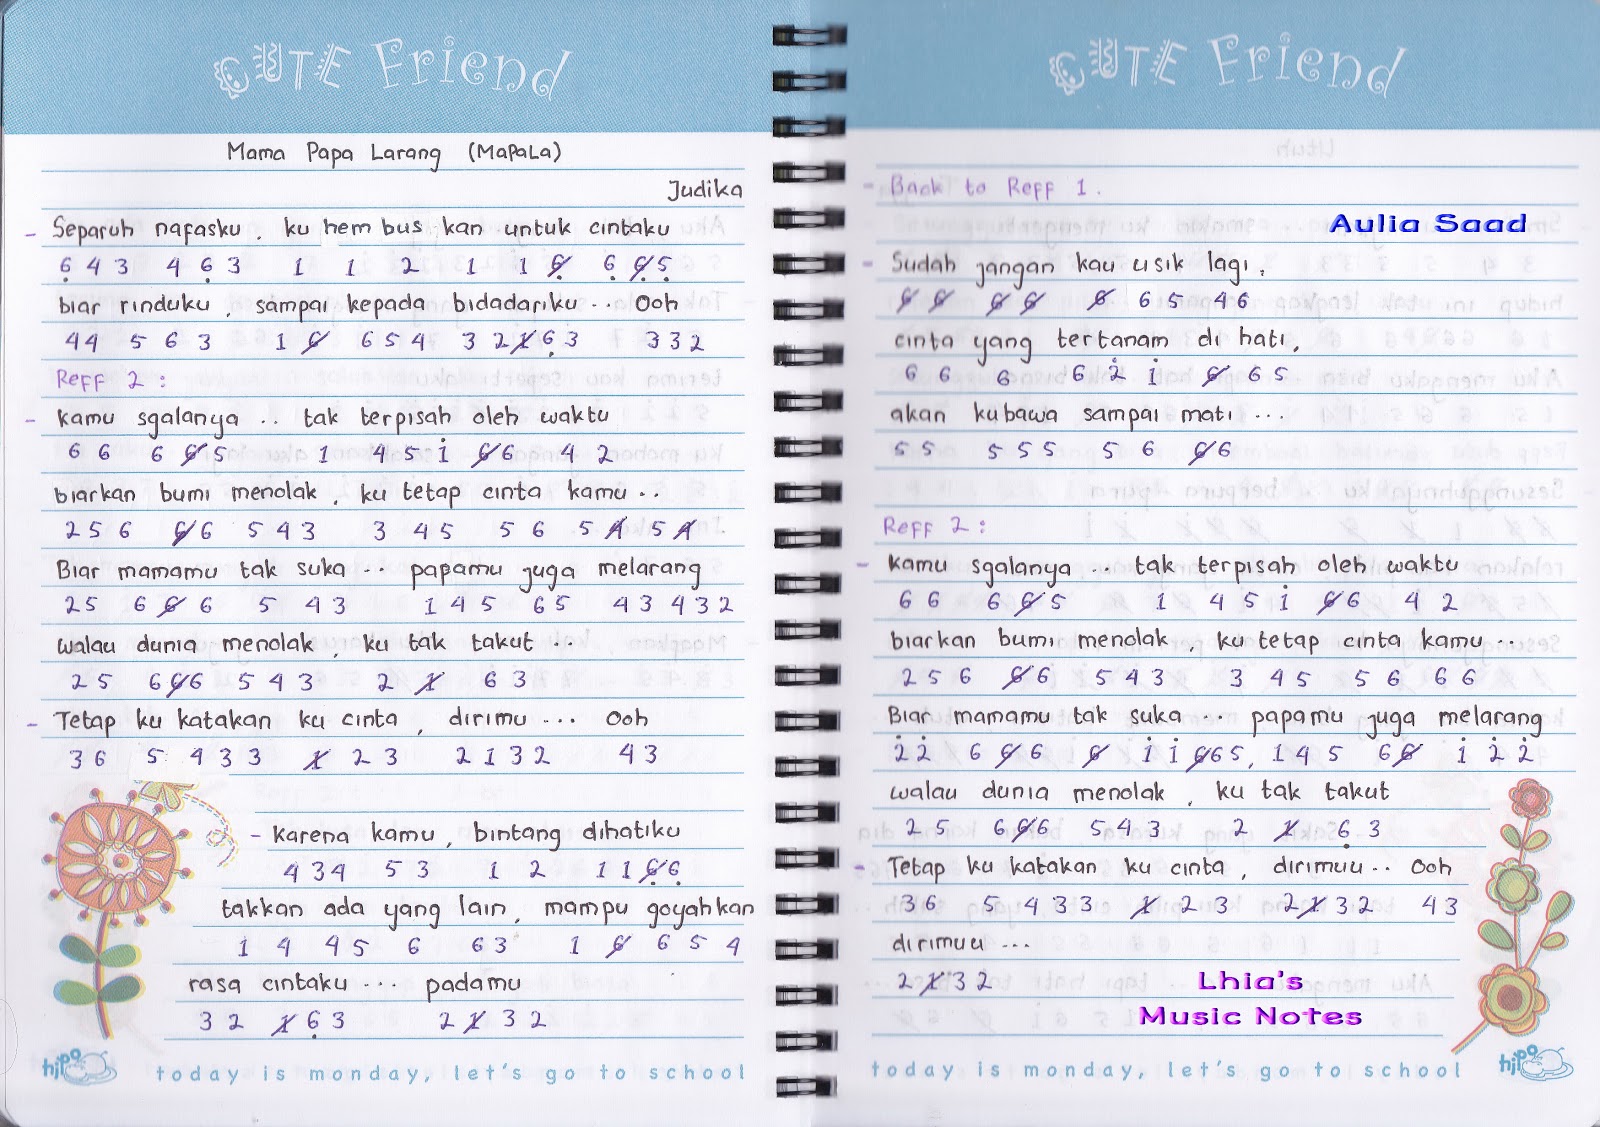 CUTE Friend
Mama Papa Larang (MaPaLa)
Judika
- Separuh nafasku, ku hembuskan untuk cintaku
6 4 3 4 6 3 1 1 2 1 1 6 6 6 5
biar rinduku, sampai kepada bidadariku .. Ooh
4 4 5 6 3 1 6 6 5 4 3 2 1 6 3 3 3 2
Reff 2 :
- Kamu sgalanya .. tak terpisah oleh waktu
6 6 6 6 5 1 4 5 i 6 6 4 2
biarkan bumi menolak, ku tetap cinta kamu ..
2 5 6 6 6 5 4 3 3 4 5 5 6 5 4 5 4
Biar mamamu tak suka .. papamu juga melarang
2 5 6 6 6 5 4 3 1 4 5 6 5 4 3 4 3 2
walau dunia menolak, ku tak takut ...
2 5 6 6 6 5 4 3 2 1 6 3
- Tetap ku katakan ku cinta, dirimu ... Ooh
3 6 5 4 3 3 1 2 3 2 1 3 2 4 3
- Karena kamu, bintang dihatiku
4 3 4 5 3 1 2 1 1 6 6
takkan ada yang lain, mampu goyahkan
1 4 4 5 6 6 3 1 6 6 5 4
rasa cintaku ... padamu
3 2 1 6 3 2 1 3 2
hipo
today is monday, let's go to school
CUTE Friend
- Back to Reff 1.
Aulia Saad
- Sudah jangan kau usik lagi,
6 6 6 6 6 6 5 4 6
cinta yang tertanam di hati,
6 6 6 6 2 i 6 6 5
akan kubawa sampai mati ...
5 5 5 5 5 5 6 6 6
Reff 2 :
- Kamu sgalanya ... tak terpisah oleh waktu
6 6 6 6 5 1 4 5 i 6 6 4 2
biarkan bumi menolak, ku tetap cinta kamu ..
2 5 6 6 6 5 4 3 3 4 5 5 6 6 6
Biar mamamu tak suka ... papamu juga melarang
2 2 6 6 6 6 i i 6 6 5, 1 4 5 6 6 i 2 2
walau dunia menolak, ku tak takut
2 5 6 6 6 5 4 3 2 1 6 3
- Tetap ku katakan ku cinta, dirimuu .. Ooh
3 6 5 4 3 3 1 2 3 2 1 3 2 4 3
dirimuu ...
2 1 3 2
Lhia's
Music Notes
today is monday, let's go to school
hipo